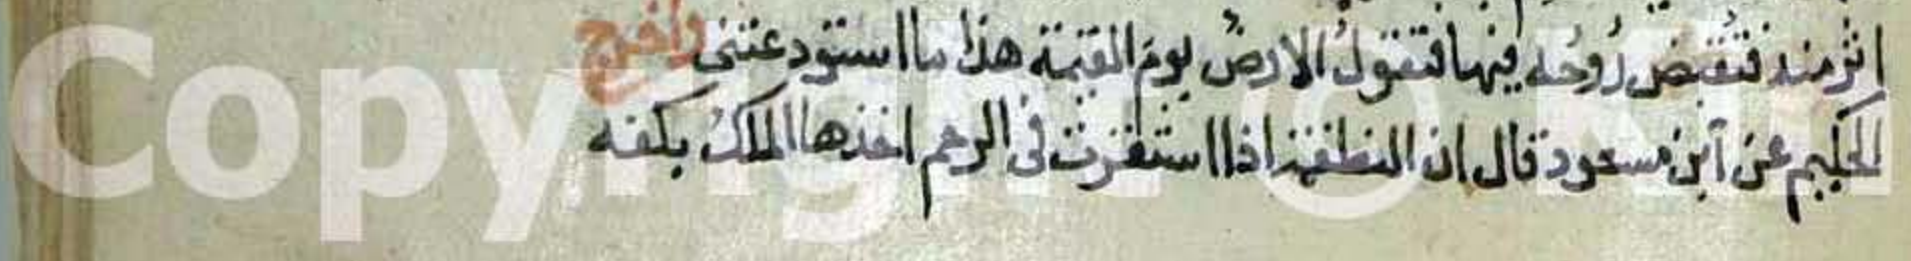 اثر منه فتقبض روحه فيها فتقول الارض يوم القيمة هذا ما استودعتنى واخرج
الحكيم عن ابن مسعود قال ان النطفة اذا استقرت فى الرحم اخذها الملك بكفه
Copyright ©